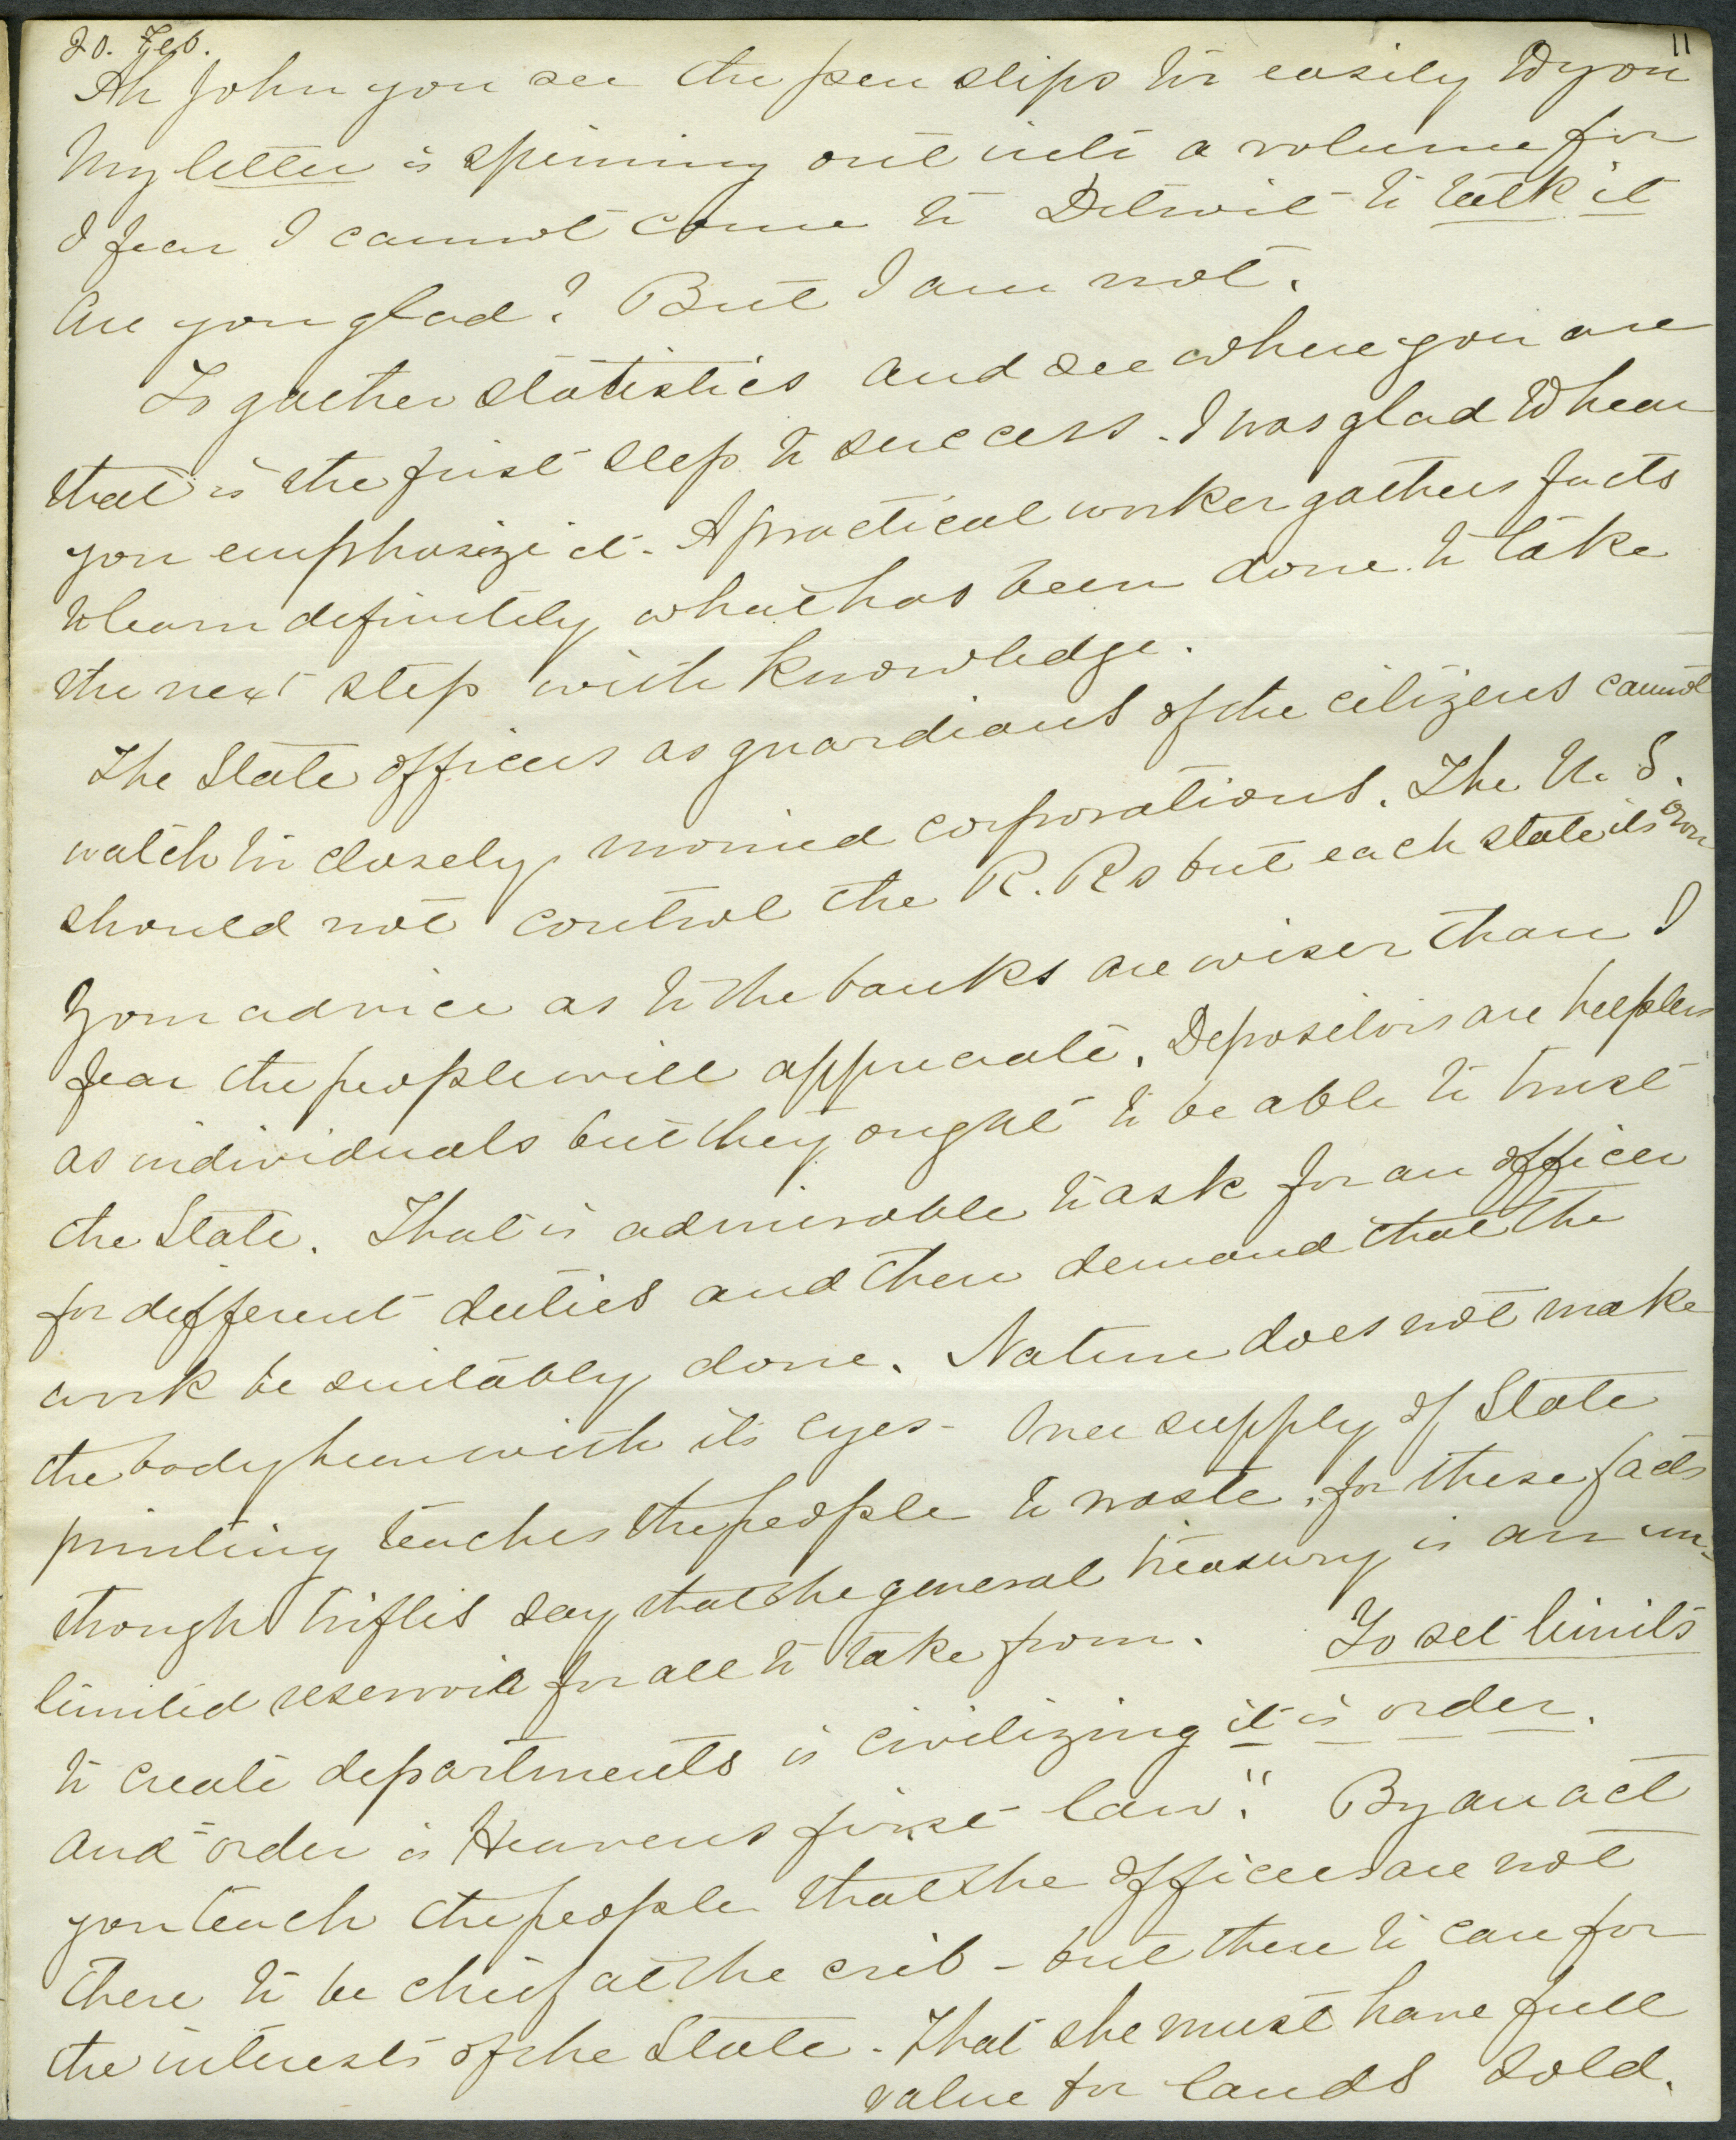 20. Feb.
11
Ah John you see the pen slips too easily to you
My letter is spinning out into a volume for
I fear I cannot come to Detroit to talk it
Are you glad? But I am not.
To gather statistics and see where you are
that is the first step to success. I was glad to hear
you emphasize it. A practical worker gathers facts
to learn definitely what has been done to take
the next step with knowledge.
The State officers as guardians of the citizens cannot
watch too closely monied corporations. The U. S.
should not control the R. Rs but each state its own
Your advice as to the banks are wiser than I
fear the people will appreciate. Depositors are helpless
as individuals but they ought to be able to trust
the State. That is admirable to ask for an officer
for different duties and then demand that the
work be suitably done. Nature does not make
the body hear with its eyes - Over supply of State
printing teaches the people to waste, for these facts
though trifles say that the general treasury is an un-
limited reservoir for all to take from. To set limits
to create departments is civilizing it is order.
And "order is Heavens first law." By an act
you teach the people that the officers are not
there to be chief at the crib - but there to care for
the interests of the State - That she must have full
value for lands sold.